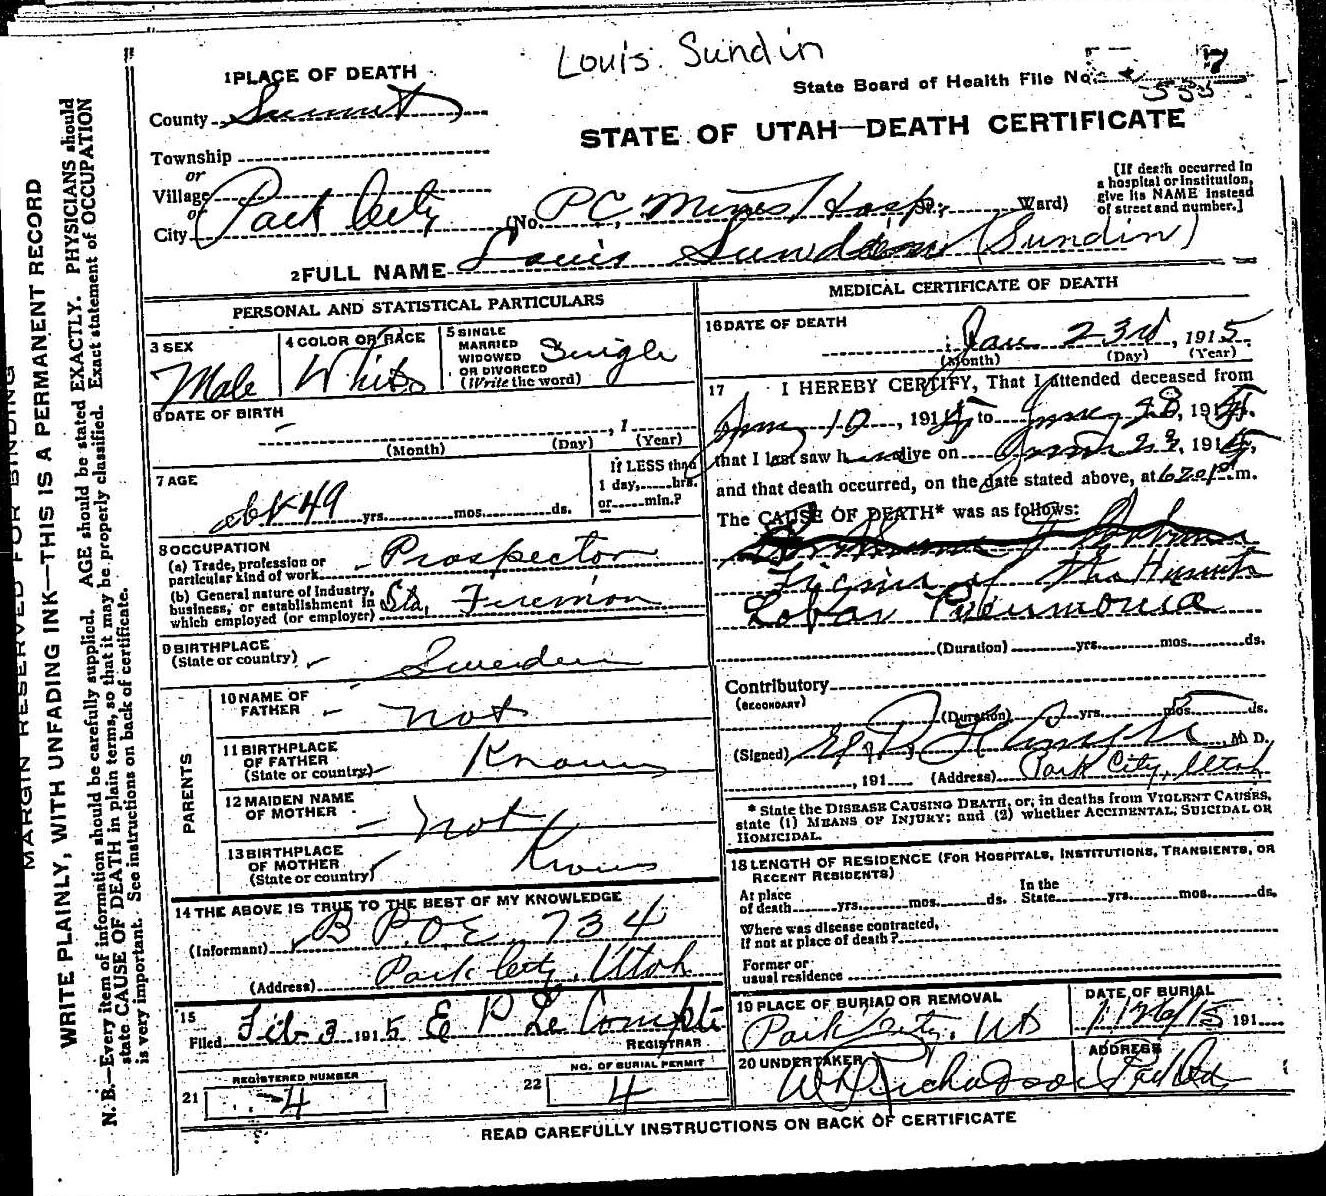 Louis Sundin
State Board of Health File No. 7
STATE OF UTAH—DEATH CERTIFICATE
1 PLACE OF DEATH
County Summit
Township
or
Village
or
City Park City (No. P C Mines Hosp. St.; Ward)
[If death occurred in
a hospital or institution,
give its NAME instead
of street and number.]
2 FULL NAME Louis (Sundin)
PERSONAL AND STATISTICAL PARTICULARS
3 SEX
Male
4 COLOR OR RACE
White
5 SINGLE
MARRIED
WIDOWED
OR DIVORCED
(Write the word)
Single
6 DATE OF BIRTH
, 1
(Month) (Day) (Year)
7 AGE
abt 49 yrs. mos. ds.
If LESS than
1 day, hrs.
or min.?
8 OCCUPATION
(a) Trade, profession or
particular kind of work Prospector
(b) General nature of Industry,
business, or establishment in
which employed (or employer) Sta. Fireman
9 BIRTHPLACE
(State or country) Sweden
PARENTS
10 NAME OF
FATHER not
11 BIRTHPLACE
OF FATHER
(State or country) Known
12 MAIDEN NAME
OF MOTHER not
13 BIRTHPLACE
OF MOTHER
(State or country) Known
14 THE ABOVE IS TRUE TO THE BEST OF MY KNOWLEDGE
(Informant) B.P.O.E. 734
(Address) Park City, Utah
15
Filed Feb 3 1915 E P Le Compte
REGISTRAR
21 REGISTERED NUMBER
4
22 NO. OF BURIAL PERMIT
4
MEDICAL CERTIFICATE OF DEATH
16 DATE OF DEATH
Jan 23rd, 1915
(Month) (Day) (Year)
17 I HEREBY CERTIFY, That I attended deceased from
10, 191 to , 191
that I last saw h alive on 23, 191
and that death occurred, on the date stated above, at m.
The CAUSE OF DEATH* was as follows:
Lobar Pneumonia
(Duration) yrs. mos. ds.
Contributory
(SECONDARY)
(Duration) yrs. mos. ds.
(Signed) M D.
, 191 (Address) Park City, Utah
* State the DISEASE CAUSING DEATH, or, in deaths from VIOLENT CAUSES,
state (1) MEANS OF INJURY; and (2) whether ACCIDENTAL, SUICIDAL OR
HOMICIDAL.
18 LENGTH OF RESIDENCE (FOR HOSPITALS, INSTITUTIONS, TRANSIENTS, OR
RECENT RESIDENTS)
At place
of death yrs. mos. ds.
In the
State yrs. mos. ds.
Where was disease contracted,
if not at place of death?
Former or
usual residence
19 PLACE OF BURIAL OR REMOVAL
Park City, Ut
DATE OF BURIAL
1/26/15 191
20 UNDERTAKER
W Richardson
ADDRESS
READ CAREFULLY INSTRUCTIONS ON BACK OF CERTIFICATE
MARGIN RESERVED FOR BINDING
WRITE PLAINLY, WITH UNFADING INK—THIS IS A PERMANENT RECORD
N. B.—Every item of information should be carefully supplied. AGE should be stated EXACTLY. PHYSICIANS should
state CAUSE OF DEATH in plain terms, so that it may be properly classified. Exact statement of OCCUPATION
is very important. See instructions on back of certificate.